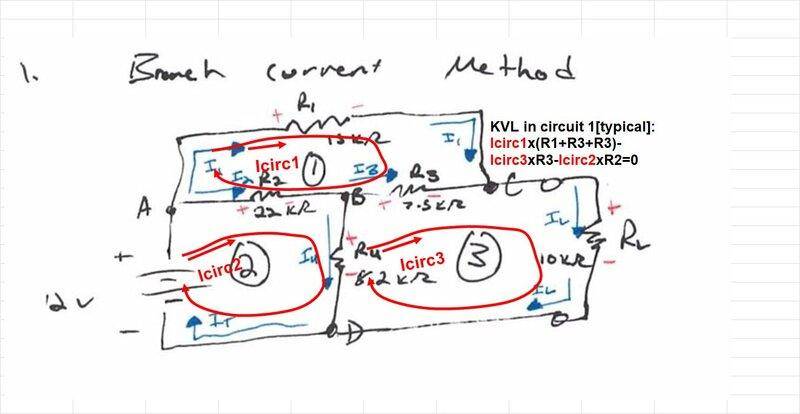 1. Branch current Method
R1
+ -
15 KΩ
KVL in circuit 1[typical]:
Icirc1x(R1+R3+R3)-
Icirc3xR3-Icirc2xR2=0
I1
I1
Icirc1
1
I2
R2
I3
R3
A
+
22 KΩ
B
+
7.5 KΩ
C
+
12 V
-
Icirc2
2
I4
+
R4
-
8.2 KΩ
Icirc3
3
IL
+
RL
-
10 KΩ
IL
IT
D